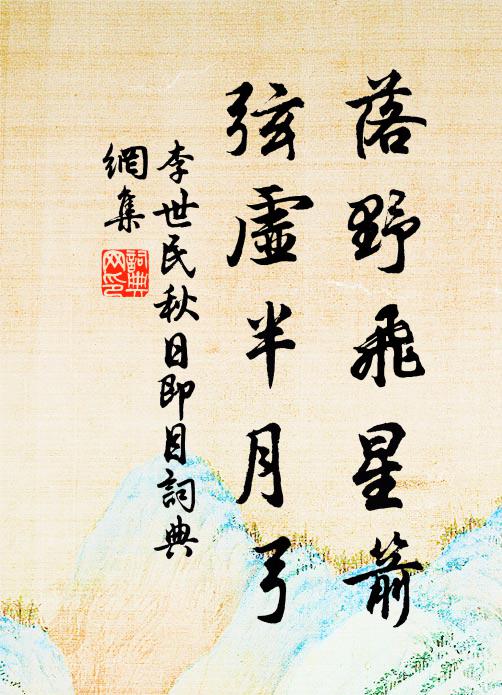 落野飛星箭
弦虛半月弓
李世民秋日即目詞典
網集
詞典
网印